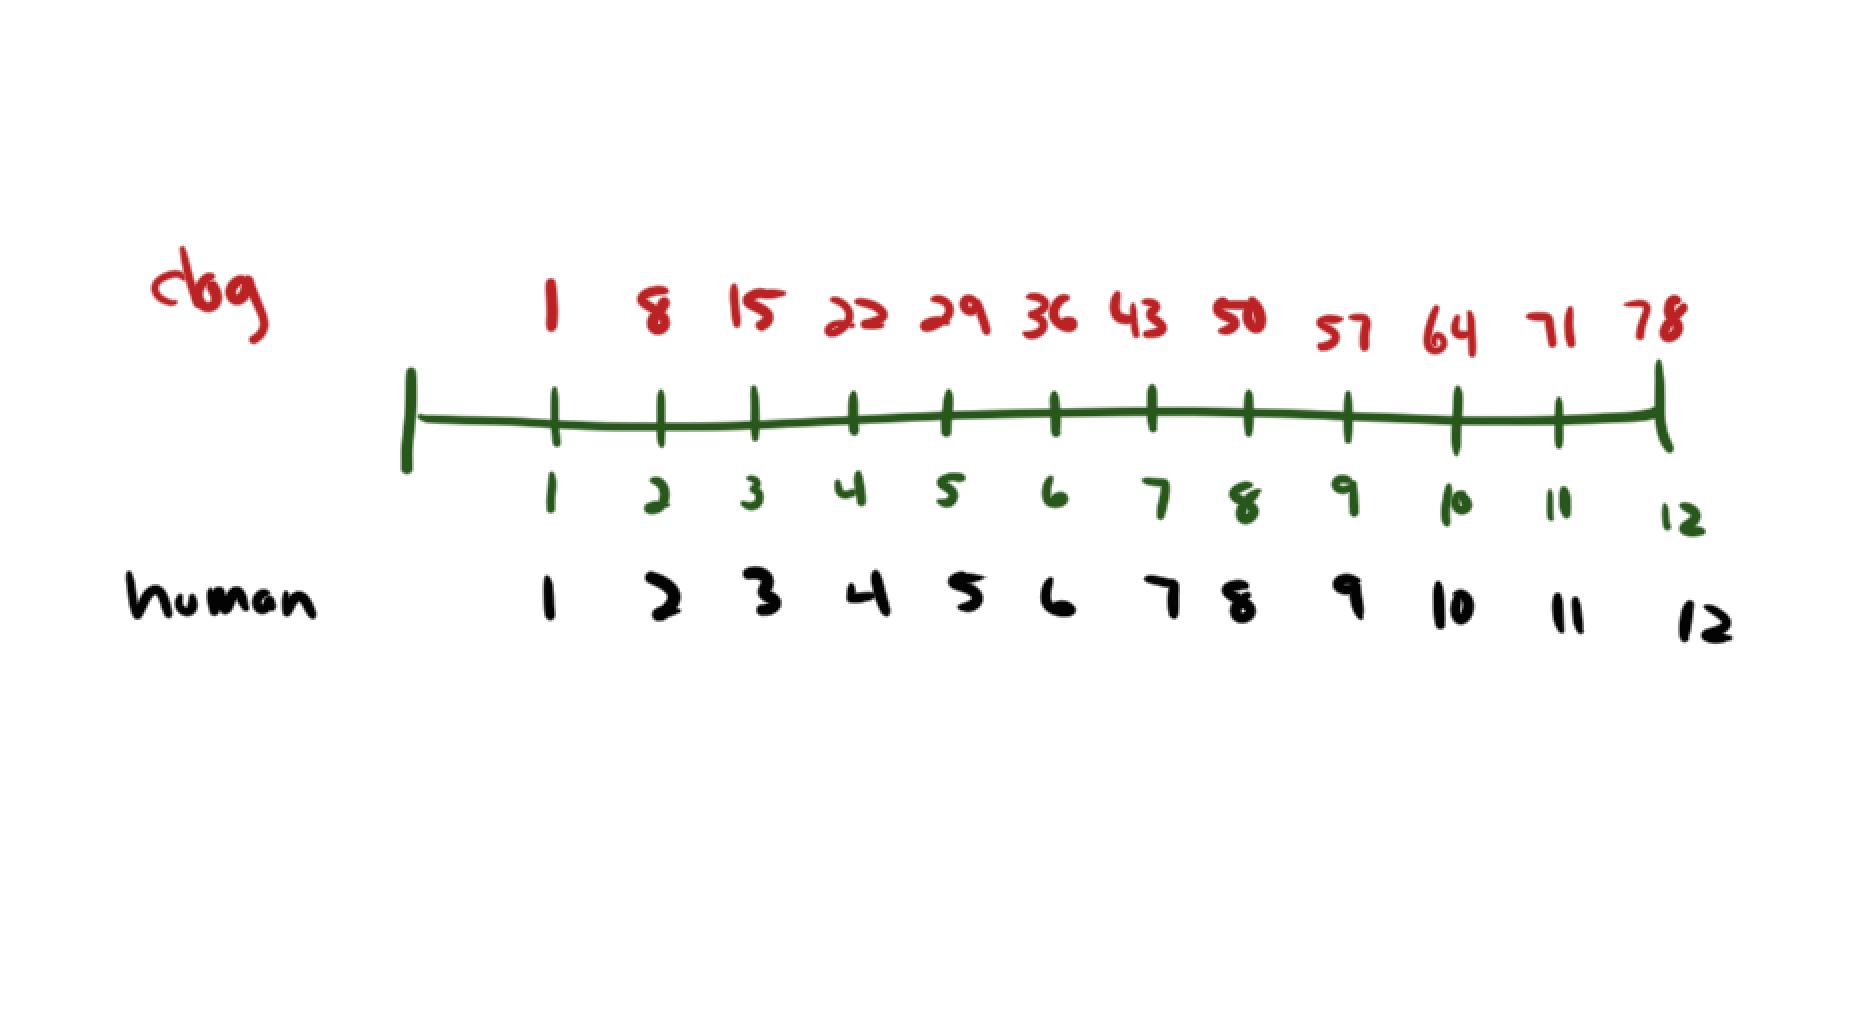 dog 1 8 15 22 29 36 43 50 57 64 71 78
1 2 3 4 5 6 7 8 9 10 11 12
human 1 2 3 4 5 6 7 8 9 10 11 12